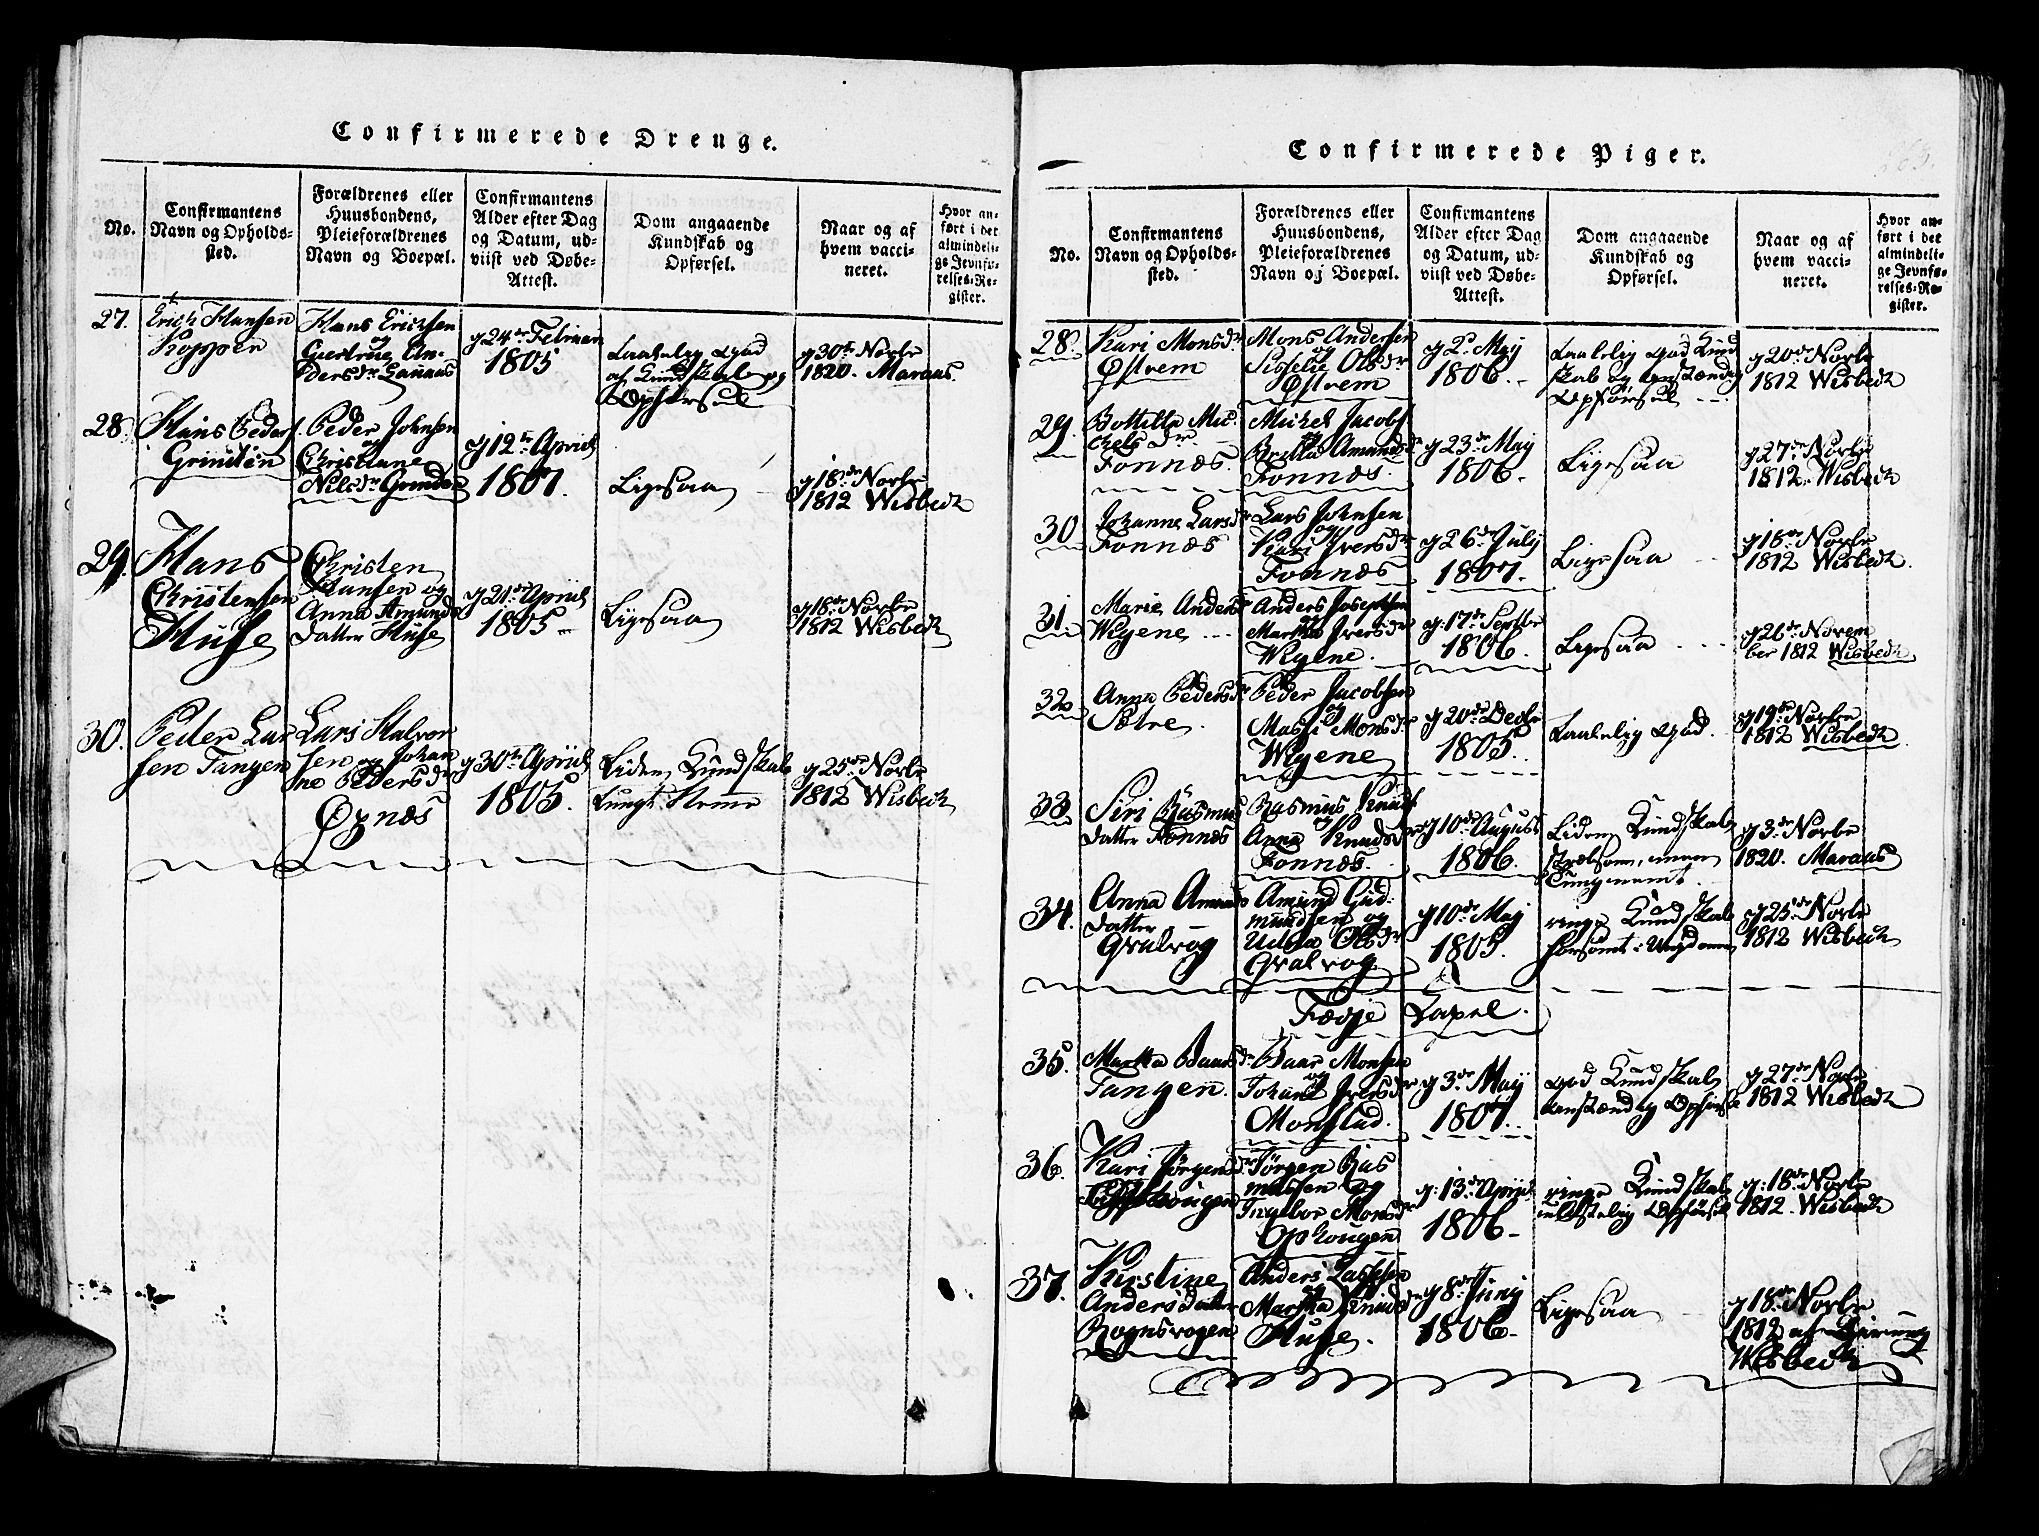 Confirmerede Drenge.
No.
Confirmantens
Navn og Opholds-
sted.
Forældrenes eller
Huusbondens,
Pleieforældrenes
Navn og Boepæl.
Confirmantens
Alder efter Dag
og Datum, ud-
viist ved Døbe-
Attest.
Dom angaaende
Kundskab og
Opførsel.
Naar og af
hvem vacci-
neret.
Hvor an-
ført i det
almindeli-
ge Jevnfø-
relses-Re-
gister.
27.
Erich Hansen
Hans Erichsen
og
1805
1820. Maraas.
28.
Peder Johnsen
og
Christiane
Nilsdr
1807.
Ligesaa
d 18de Novbr
1812 Wisbech
29.
Hans
Christensen
Huse
Christen
Hansen og
Anna Amunds
datter Huse
d 21de Apriil
1805
Ligesaa
d 18de Novbr
1812 Wisbech
30.
Peder Lar
sen Tangen
Lars Halvor
sen og Johan
ne Pedersdr
Øpnæs
d 30te Apriil
1805.
Liden Kundskab
d 25de Novbr
1812 Wisbech
Confirmerede Piger.
263.
No.
Confirmantens
Navn og Opholds-
sted.
Forældrenes eller
Huusbondens,
Pleieforældrenes
Navn og Boepæl.
Confirmantens
Alder efter Dag
og Datum, ud-
viist ved Døbe-
Attest.
Dom angaaende
Kundskab og
Opførsel.
Naar og af
hvem vacci-
neret.
Hvor an-
ført i det
almindeli-
ge Jevnfø-
relses-Re-
gister.
28.
Kari Monsdr
Østrem
Mons Andersen
og
Sisselie Olsdr
Østrem
d 2d May
1806.
Taalelig god Kund
skab og anstændig
Opførsel
d 20de Novbr
1812 Wisbech
29.
Bottilla Mic
chels dr
Fonnæs.
Michel Jacobs
Britha Amundsd
Fonnæs
d 23de May
1806.
Ligesaa
d 27de Novbr
1812. Wisbech
30
Johanne Larsdr
Fonnæs
Lars Johnsen
og
Kari Iversdr
Fonnæs
d 26de July
1807.
Ligesaa
d 18de Novbr
1812 Wisbech.
31.
Marie Anders
Wigene
Anders Josephsen
og
Martha Iversdr
Wigene.
d. 17de Septbr
1806.
Ligesaa
d 26de Novem
ber 1812 Wisbech
32
Anna Pedersdr
Sætre.
Peder Jacobsen
og
Massi Monsdr
Wigene
d 20de Decbr
1805.
Taalelig god.
d 19de Novbr
1812 Wisbech.
33
Siri Rasmus
datter Fonnæs
Rasmus Knuds
og
Anna Knudsdr
Fonnæs
d 10de August
1806.
Liden Kundskab
d 3de Novbr
1820. Maraas
34.
Anna Amunds
datter
Qvalvog
Amund Gud
mundsen og
Olsdr
Qvalvog
d 10de May
1805.
ringe Kundskab
forsømt i Ungdommen
d 25de Novbr
1812 Wisbech
Fædje Capel.
35.
Martha Baarsdr
Tangen.
Baar Monsen
og
Johane Iversdr
Monslad.
d 3de May
1807.
god Kundskab
anstændig Opførsel
d 27de Novbr
1812 Wisbech
36.
Kari Jørgensdr
Jørgen Ras
mussen og
Ingebor Monsdr
Ophougen
d: 13de Apriil
1806.
ringe Kundskab
d: 18de Novbr
1812. Wisbech
37.
Kirstine
Andersdatter
Rognsvogen
Anders Lassesen
og
Martha Knudsdr
Huse.
d 8de Juny
1806.
Ligesaa
d 18de Novbr
1812 af
Wisbech